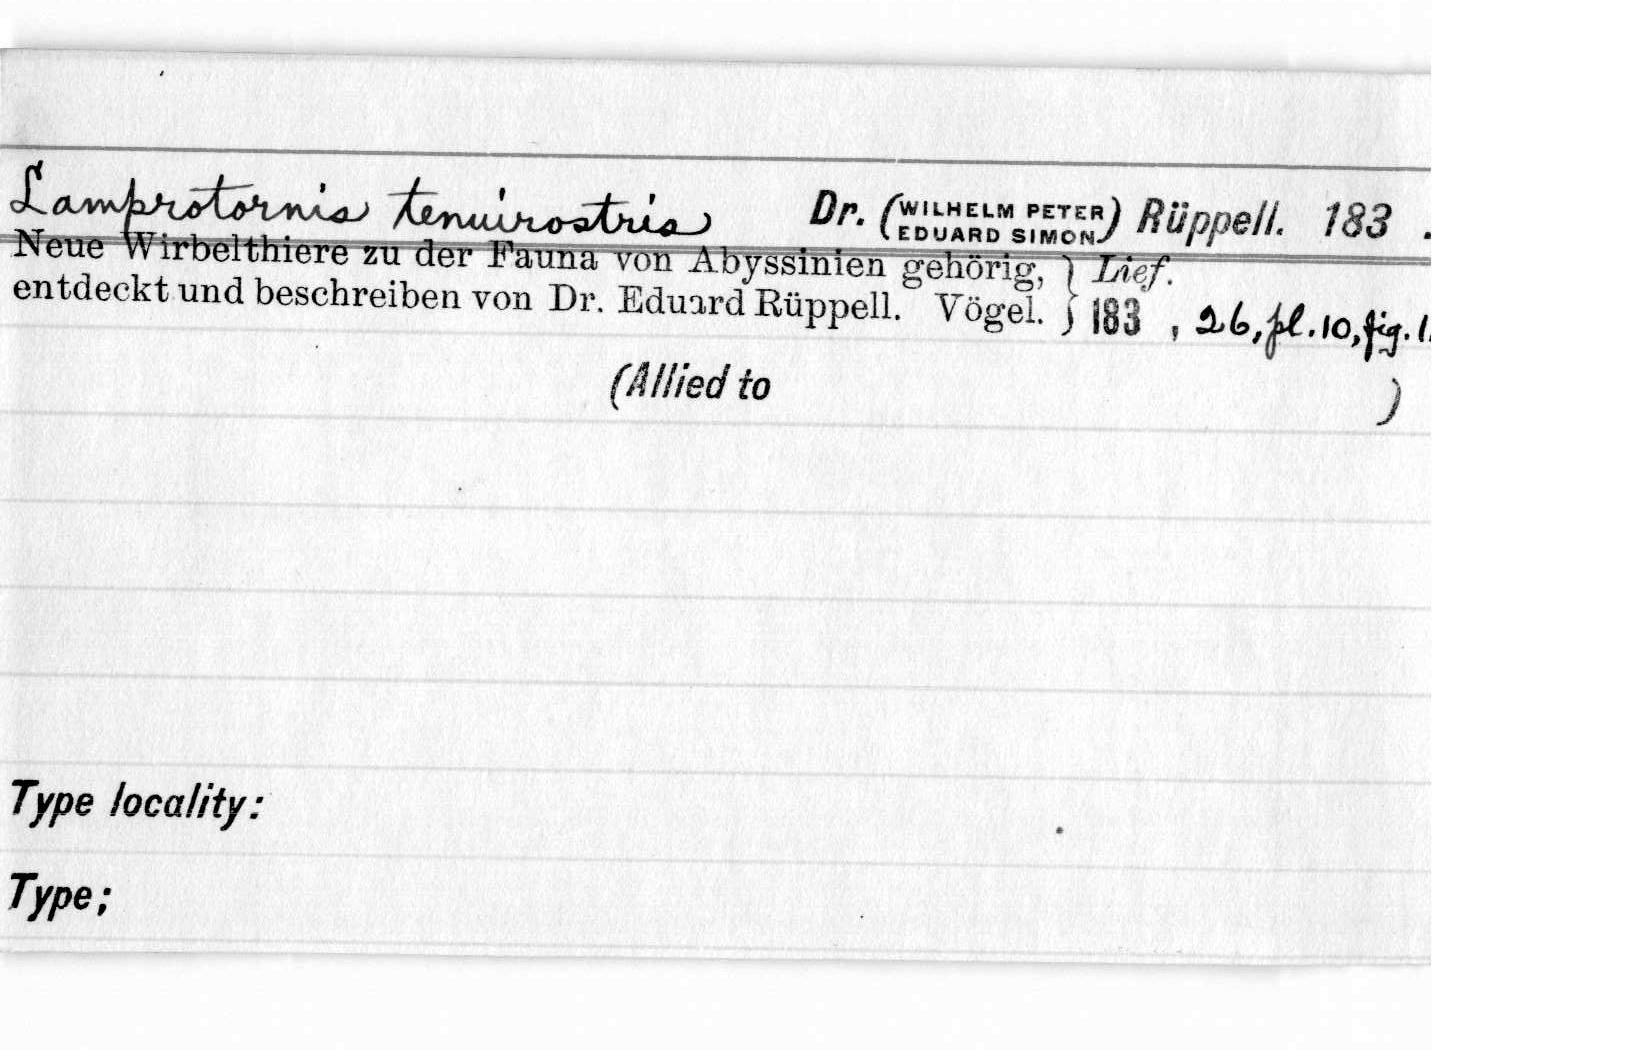 Lamprotornis tenuirostris Dr. (WILHELM PETER EDUARD SIMON) Rüppell. 183 .
Neue Wirbelthiere zu der Fauna von Abyssinien gehörig, } Lief.
entdeckt und beschreiben von Dr. Eduard Rüppell. Vögel. } 183 , 26, pl. 10, fig. 1.
(Allied to )
Type locality:
Type;